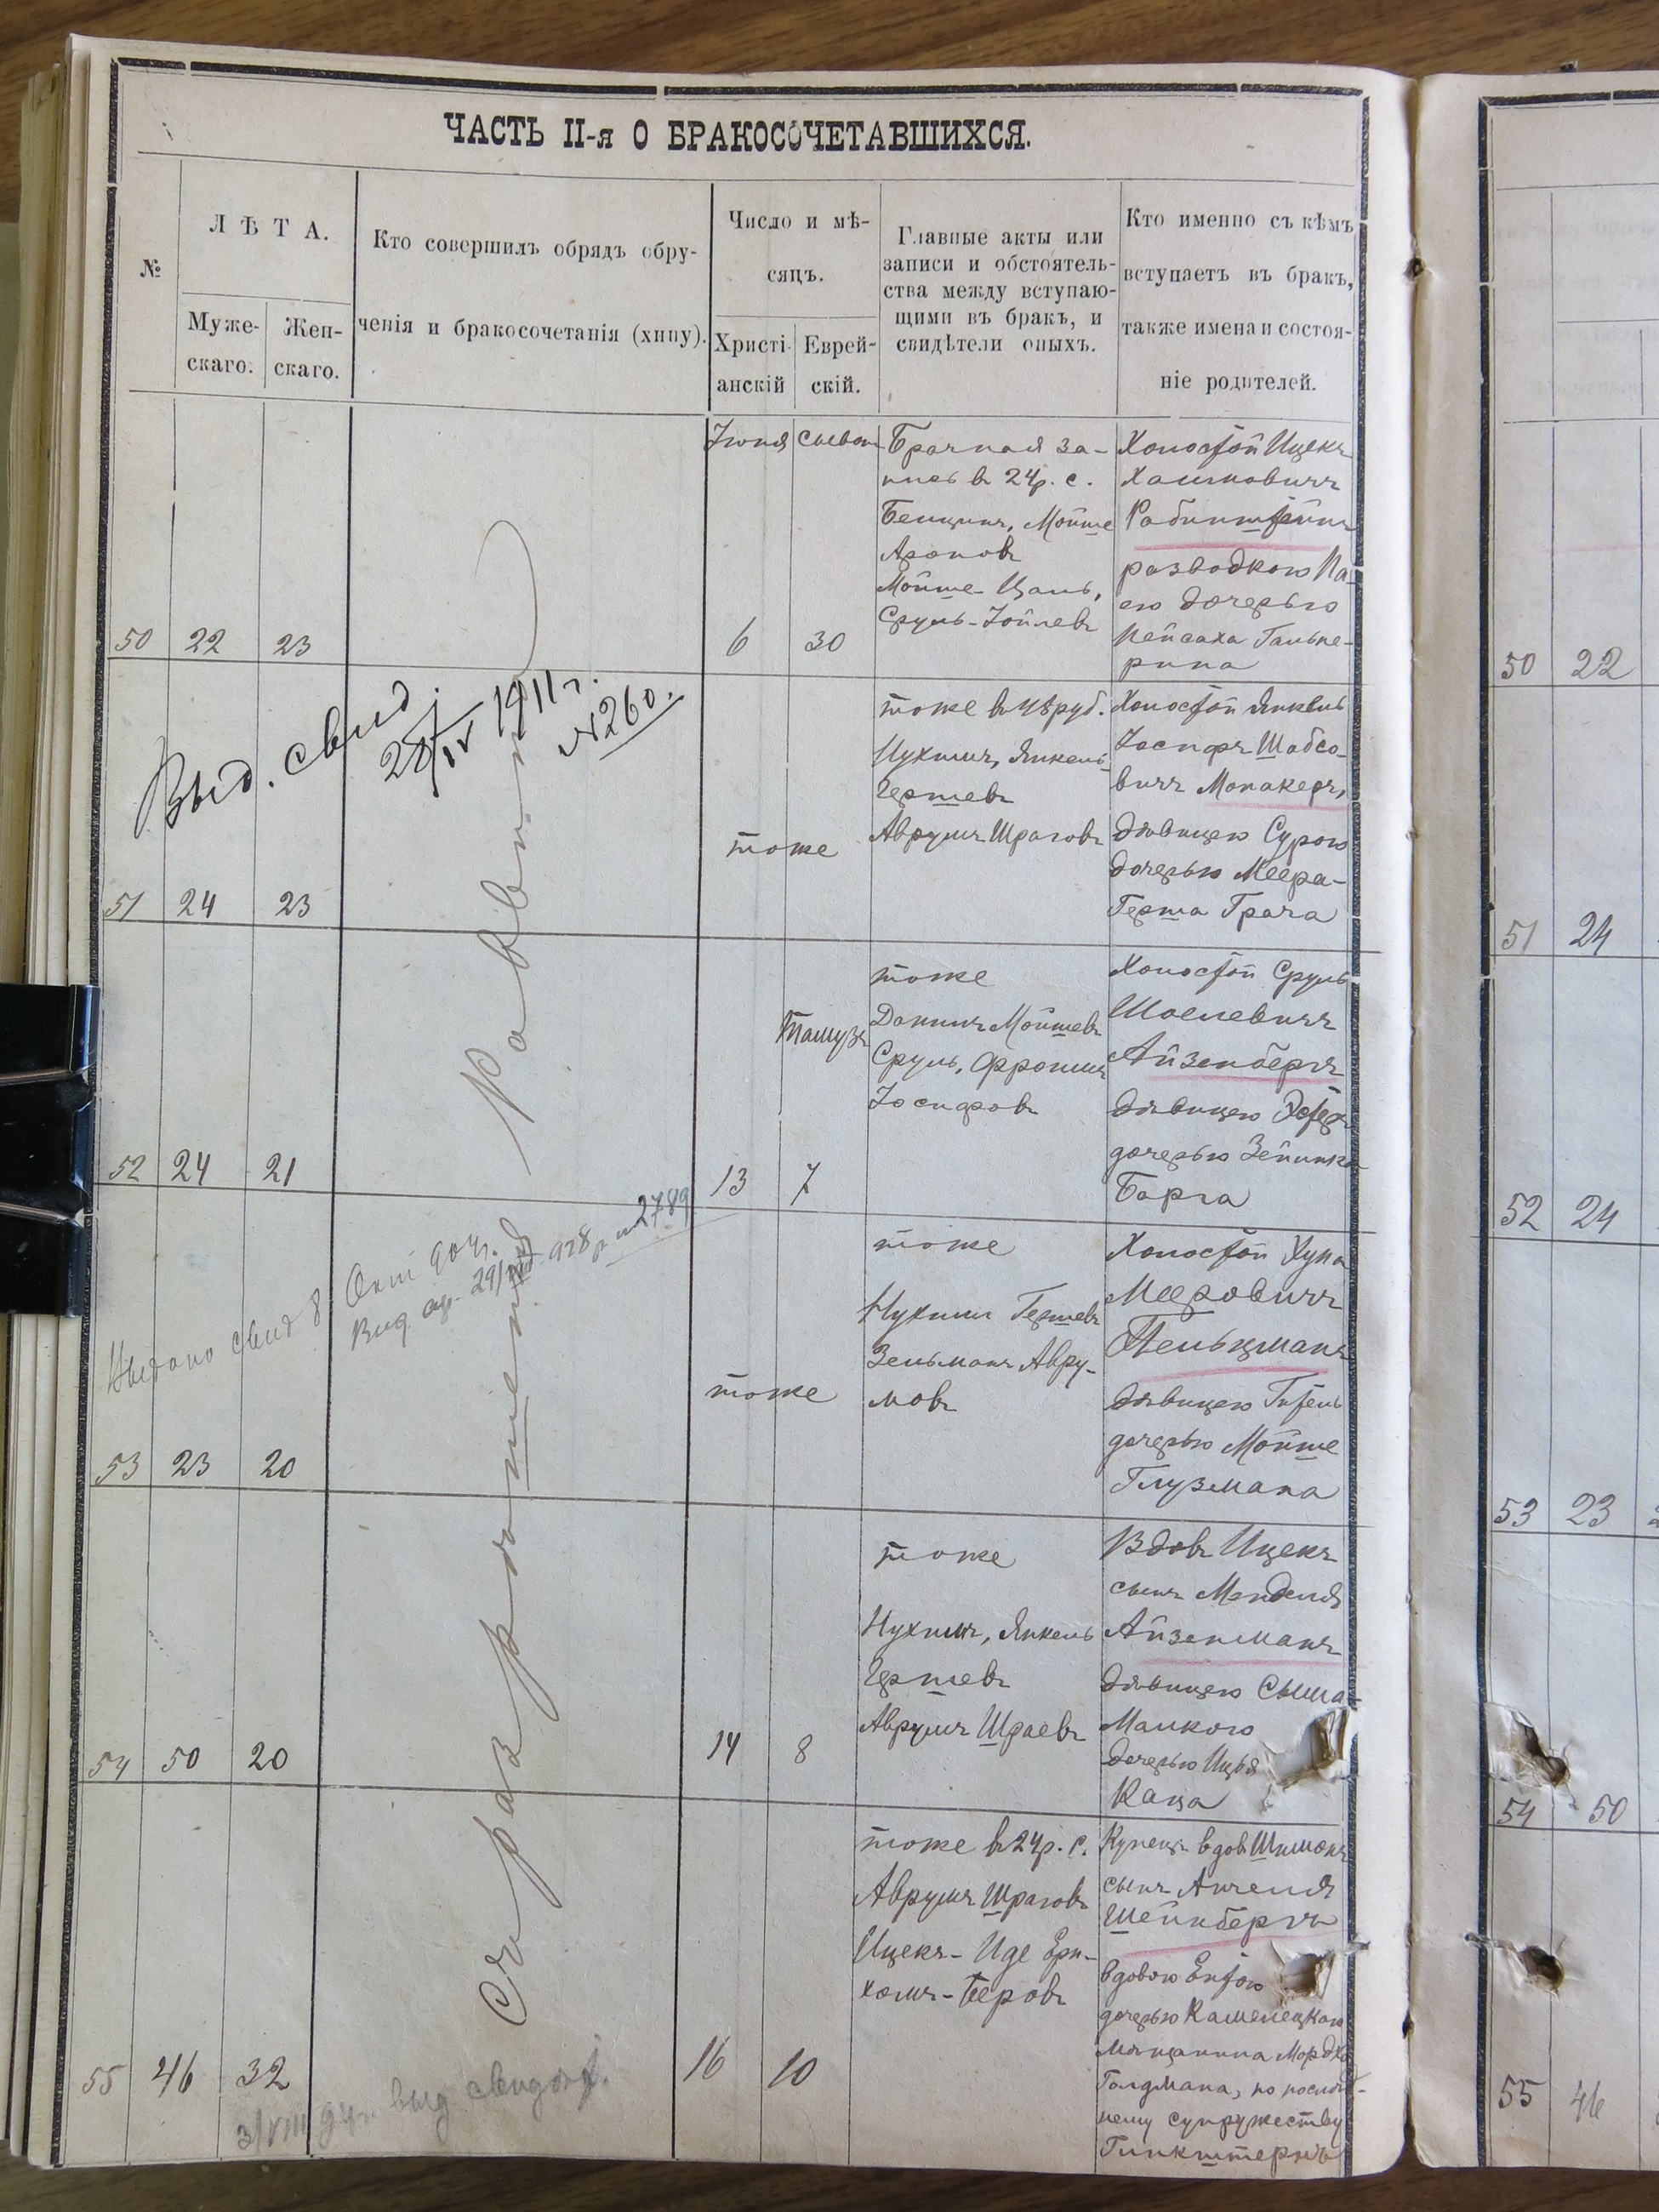 ЧАСТЬ II-я О БРАКОСОЧЕТАВШИХСЯ.
№
ЛѢТА.
Муже-
скаго.
Жен-
скаго.
Кто совершилъ обрядъ обру-
ченія и бракосочетанія (хипу).
Число и мѣ-
сяцъ.
Христі-
анскій
Еврей-
скій.
Главные акты или
записи и обстоятель-
ства между вступаю-
щими въ бракъ, и
свидѣтели оныхъ.
Кто именно съ кѣмъ
вступаетъ въ бракъ,
также имена и состоя-
ніе родителей.
С. Разрошенный Раввинъ
50 22 23
Іюня
6
Сиван
30
Брачная за-
пись в 24р. с.
Бенцинъ, Мойше
Ароновъ
Мойше-Цаль,
Сруль-Іойлевъ
Холостой Ицекъ
Хаимовичъ
Рабинштейнъ
разводкою Ха-
ею дочерью
Пейсаха Гальпе-
рина
Выд. свид.
28/IV 1911 г.
№260.
51 24 23
тоже
тоже в 48 руб.
Нухимъ, Янкель
Гершевъ
Аврумъ Шраговъ
Холостой Янкель
Іосифъ Шабсо-
вичъ Монакеръ,
дѣвицею Сурою
дочерью Меера-
Герша Грача
52 24 21
13
Тамузъ
7
тоже
Мойшевъ
Сруль, Фроимъ
Іосифовъ
Холостой Сруль
Шоелевичъ
Айзенбергъ
дѣвицею Эстер
дочерью
Барга
Выдано свид 8 Окт 904г.
Выд. 29/ 928 р №2789
53 23 20
тоже
тоже
Нухим Гершевъ
Зельманъ Авру-
мовъ
Холостой Хуна
Мееровичъ
Пельцманъ
дѣвицею Гитель
дочерью Мойше
Глузмана
54 50 20
14 8
тоже
Нухимъ, Янкель
Гершевъ
Аврумъ Шраевъ
Вдовъ Ицекъ
сынъ Менделя
Айзенманъ
дѣвицею Сыма-
Малкою
дочерью
Каца
55 46 32
16 10
тоже в 24р. с.
Аврумъ Шраговъ
Ицекъ-Иде Ери-
хомъ-Беровъ
Купецъ вдов Шимонъ
сынъ Анчеля
Шейнбергъ
вдовою Ентою
дочерью Каменецкаго
мѣщанина Мордко
Голдмана, по послѣд-
нему супружеству
Глинкштернъ
3/VIII выд. свидѣт.
50 22
51 24
52 24
53 23
54 50
55 46